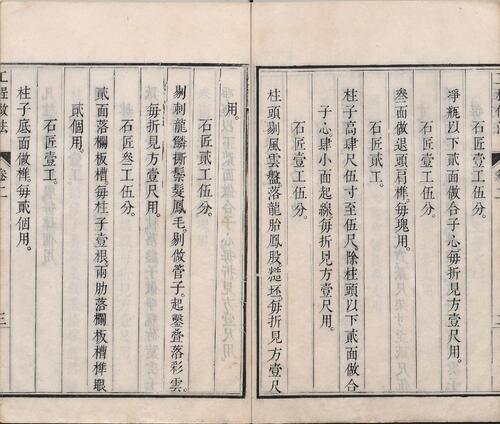 程做法 卷二
淨瓶以下貳面做合子心每折見方壹尺用。
石匠壹工伍分。
叁面做退頭肩榫。每塊用。
石匠壹工伍分。
石匠貳工。
柱子高肆尺伍寸至伍尺。除柱頭以下貳面做合
子心肆小面起線每折見方壹尺用。
石匠壹工伍分。
柱頭剔風雲盤。落龍胎鳳股糙坯。每折見方壹尺
用。
石匠貳工伍分。
剔刺龍鱗撕鬃髮鳳毛。剔做管子。起鑿叠落彩雲。
每折見方壹尺用。
石匠叁工伍分。
貳面落欄板槽。每柱子壹根。兩肋落欄板槽榫眼
貳個用。
石匠壹工。
柱子底面做榫。每貳個用。
石匠壹工。
工程做法 卷二 三